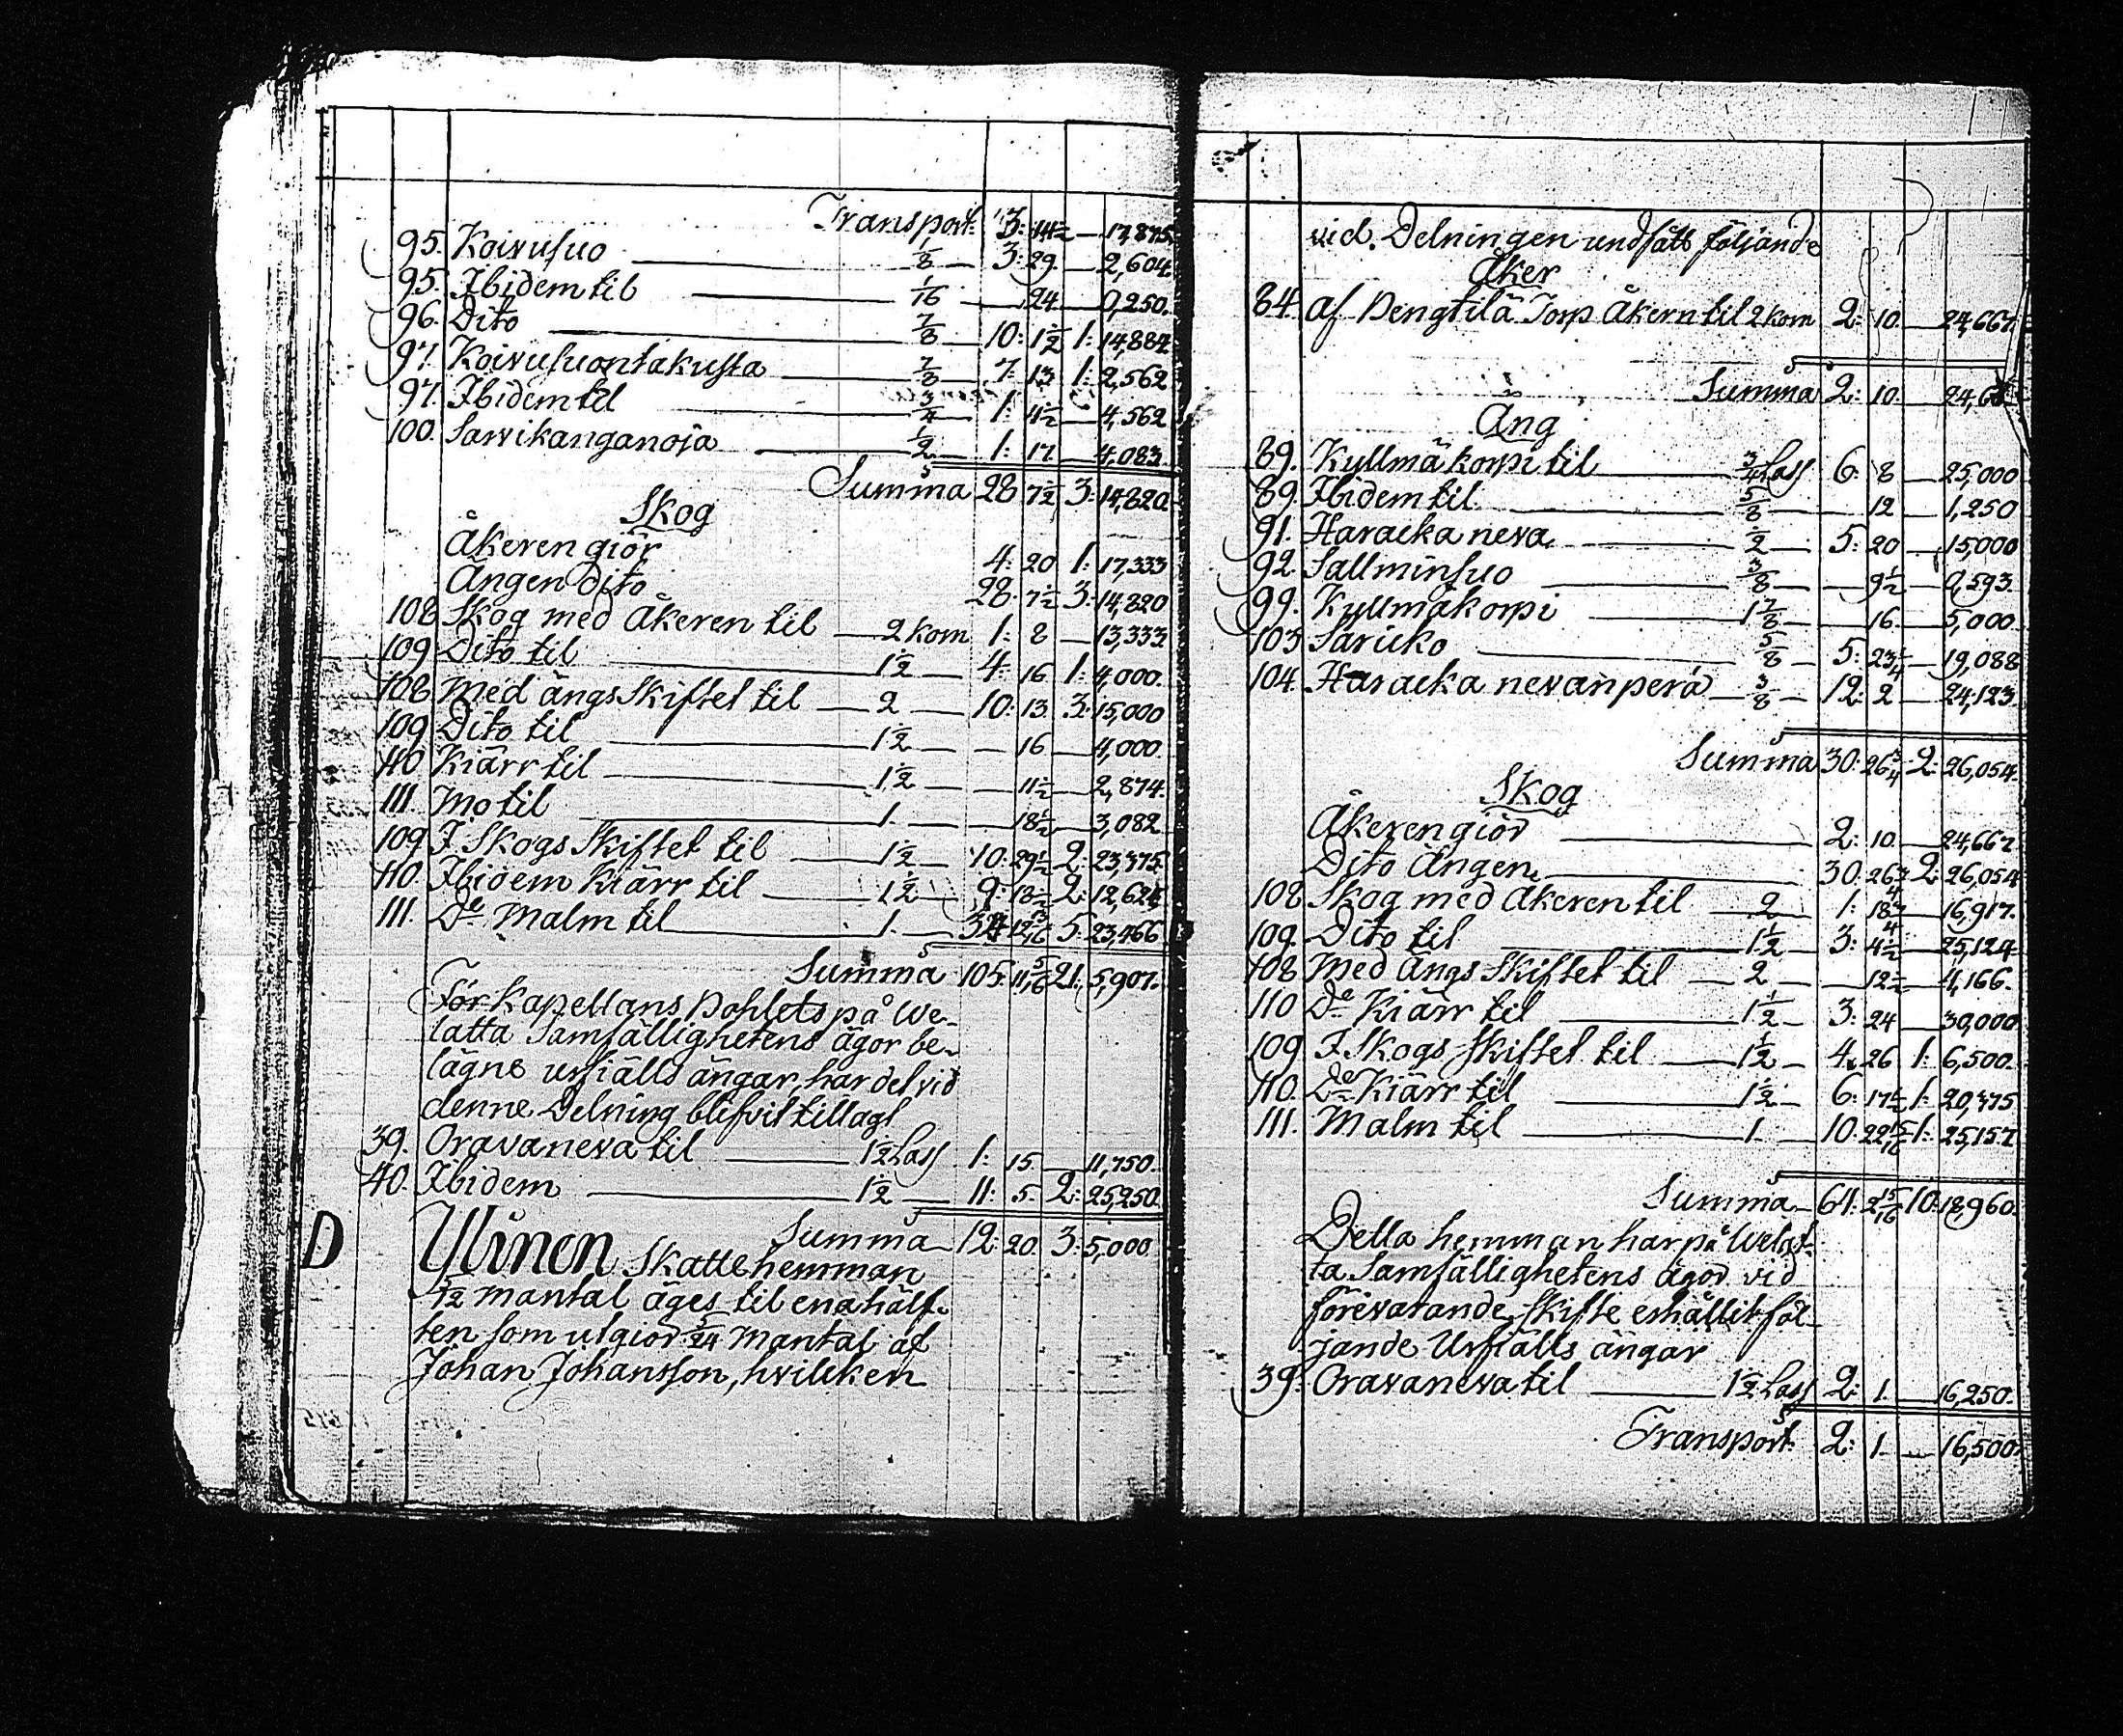 Transport 3: 14½ — 17,875
95. Koivusuo — 1/8 — 3: 29. — 2,604.
95. Ibidem til — 1/16 — 24. — 0,250.
96. Dito — 7/8 — 10: 1½ 1: 14,882
97. Koivusuontakusta — 7/8 — 7: 13 1: 2,562
97. Ibidem til — 3/4 — 1: 4½ — 4,562
100. Sarvikanganoja — 1/2 — 1: 17. — 4,083.
Summa 28 7½ 3: 14,820
Skog
Åkeren giör 4: 20 1: 17,333
Ängen dito 28: 7½ 3: 14,820
108 Skog med Åkeren til — 2 korn 1: 8 — 13,333
109 Dito til — 1½ — 4: 16 1: 4,000.
108 Med ängs Skiftet til — 2 — 10: 13. 3: 15,000
109 Dito til — 1½ — — 16 — 4,000.
110 Kiärr til — 1½ — 11½ — 2,874.
111. Mo til — 1. — 18½ — 3,082
109 I Skogs Skiftet til — 1½ — 10: 29½ 2: 23,375.
110. Ibidem Kiärr til — 1½ 9: 18½ 2: 12,624
111. Do Malm til — 1. — 34 12 13/16 5: 23,466
Summa 105: 11 5/16 21: 5,907.
För Kapellans Bohlets på We-
latta Samfällighetens ägor be-
lägne urfiälls ängar, har det vid
denne Delning blifvit tillagt
39. Oravaneva til — 1½ Lass 1: 15 — 11,750.
40. Ibidem — 1½ — 11: 5. 2: 25,250.
Summa 12: 20. 3: 5,000
D Ylinen Skattehemman
5/12 mantal äges til ena hälf-
ten som utgiör 5/24 Mantal af
Johan Johansson, hvilcken
vid. Delningen undfått följande
Åker
84. af Pengtilä Torp Åkern til 2 korn 2: 10. — 24,667.
Summa 2: 10. — 24,66
Äng
89. Kyllmäkorpi til — 3/4 Lass 6: 8 — 25,000
89. Ibidem til — 5/8 — 12 — 1,250
91. Haracka neva — 1/2 — 5: 20 — 15,000
92. Sallminsuo — 3/8 — 9½ — 0,593.
99. Kyllmäkorpi — 1 7/8 — 16. — 5,000.
103 Saricko — 5/8 — 5: 23¼ — 19,088
104. Haracka nevanperä — 3/8 — 12: 2 — 24,123
Summa 30: 26¾ 2: 26,054.
Skog
Åkeren giör — 2: 10. — 24,667
Dito Ängen — 30. 26¾ 2: 26,054
108 Skog med Åkeren til — 2 — 1: 18¾ — 16,917.
109. Dito til — 1½ — 3: 4½ — 25,124
108 Med Ängs Skiftet til — 2 — 12½ — 4,166.
110 Do Kiärr til — 1½ — 3: 24 — 30,000
109 I Skogs Skiftet til — 1½ — 4: 26 1: 6,500.
110. Do Kiärr til — 1½ — 6: 17½ 1: 20,375
111. Malm til — 1. — 10: 22 15/16 1: 25,157
Summa 61: 2 15/16 10: 18,960.
Detta hemman har på Welat-
ta Samfällighetens ägor vid
förevarande Skifte erhållit föl-
jande Urfiälls ängar
39. Oravaneva til — 1½ Lass 2: 1. — 16,250.
Transport 2: 1. — 16,500.